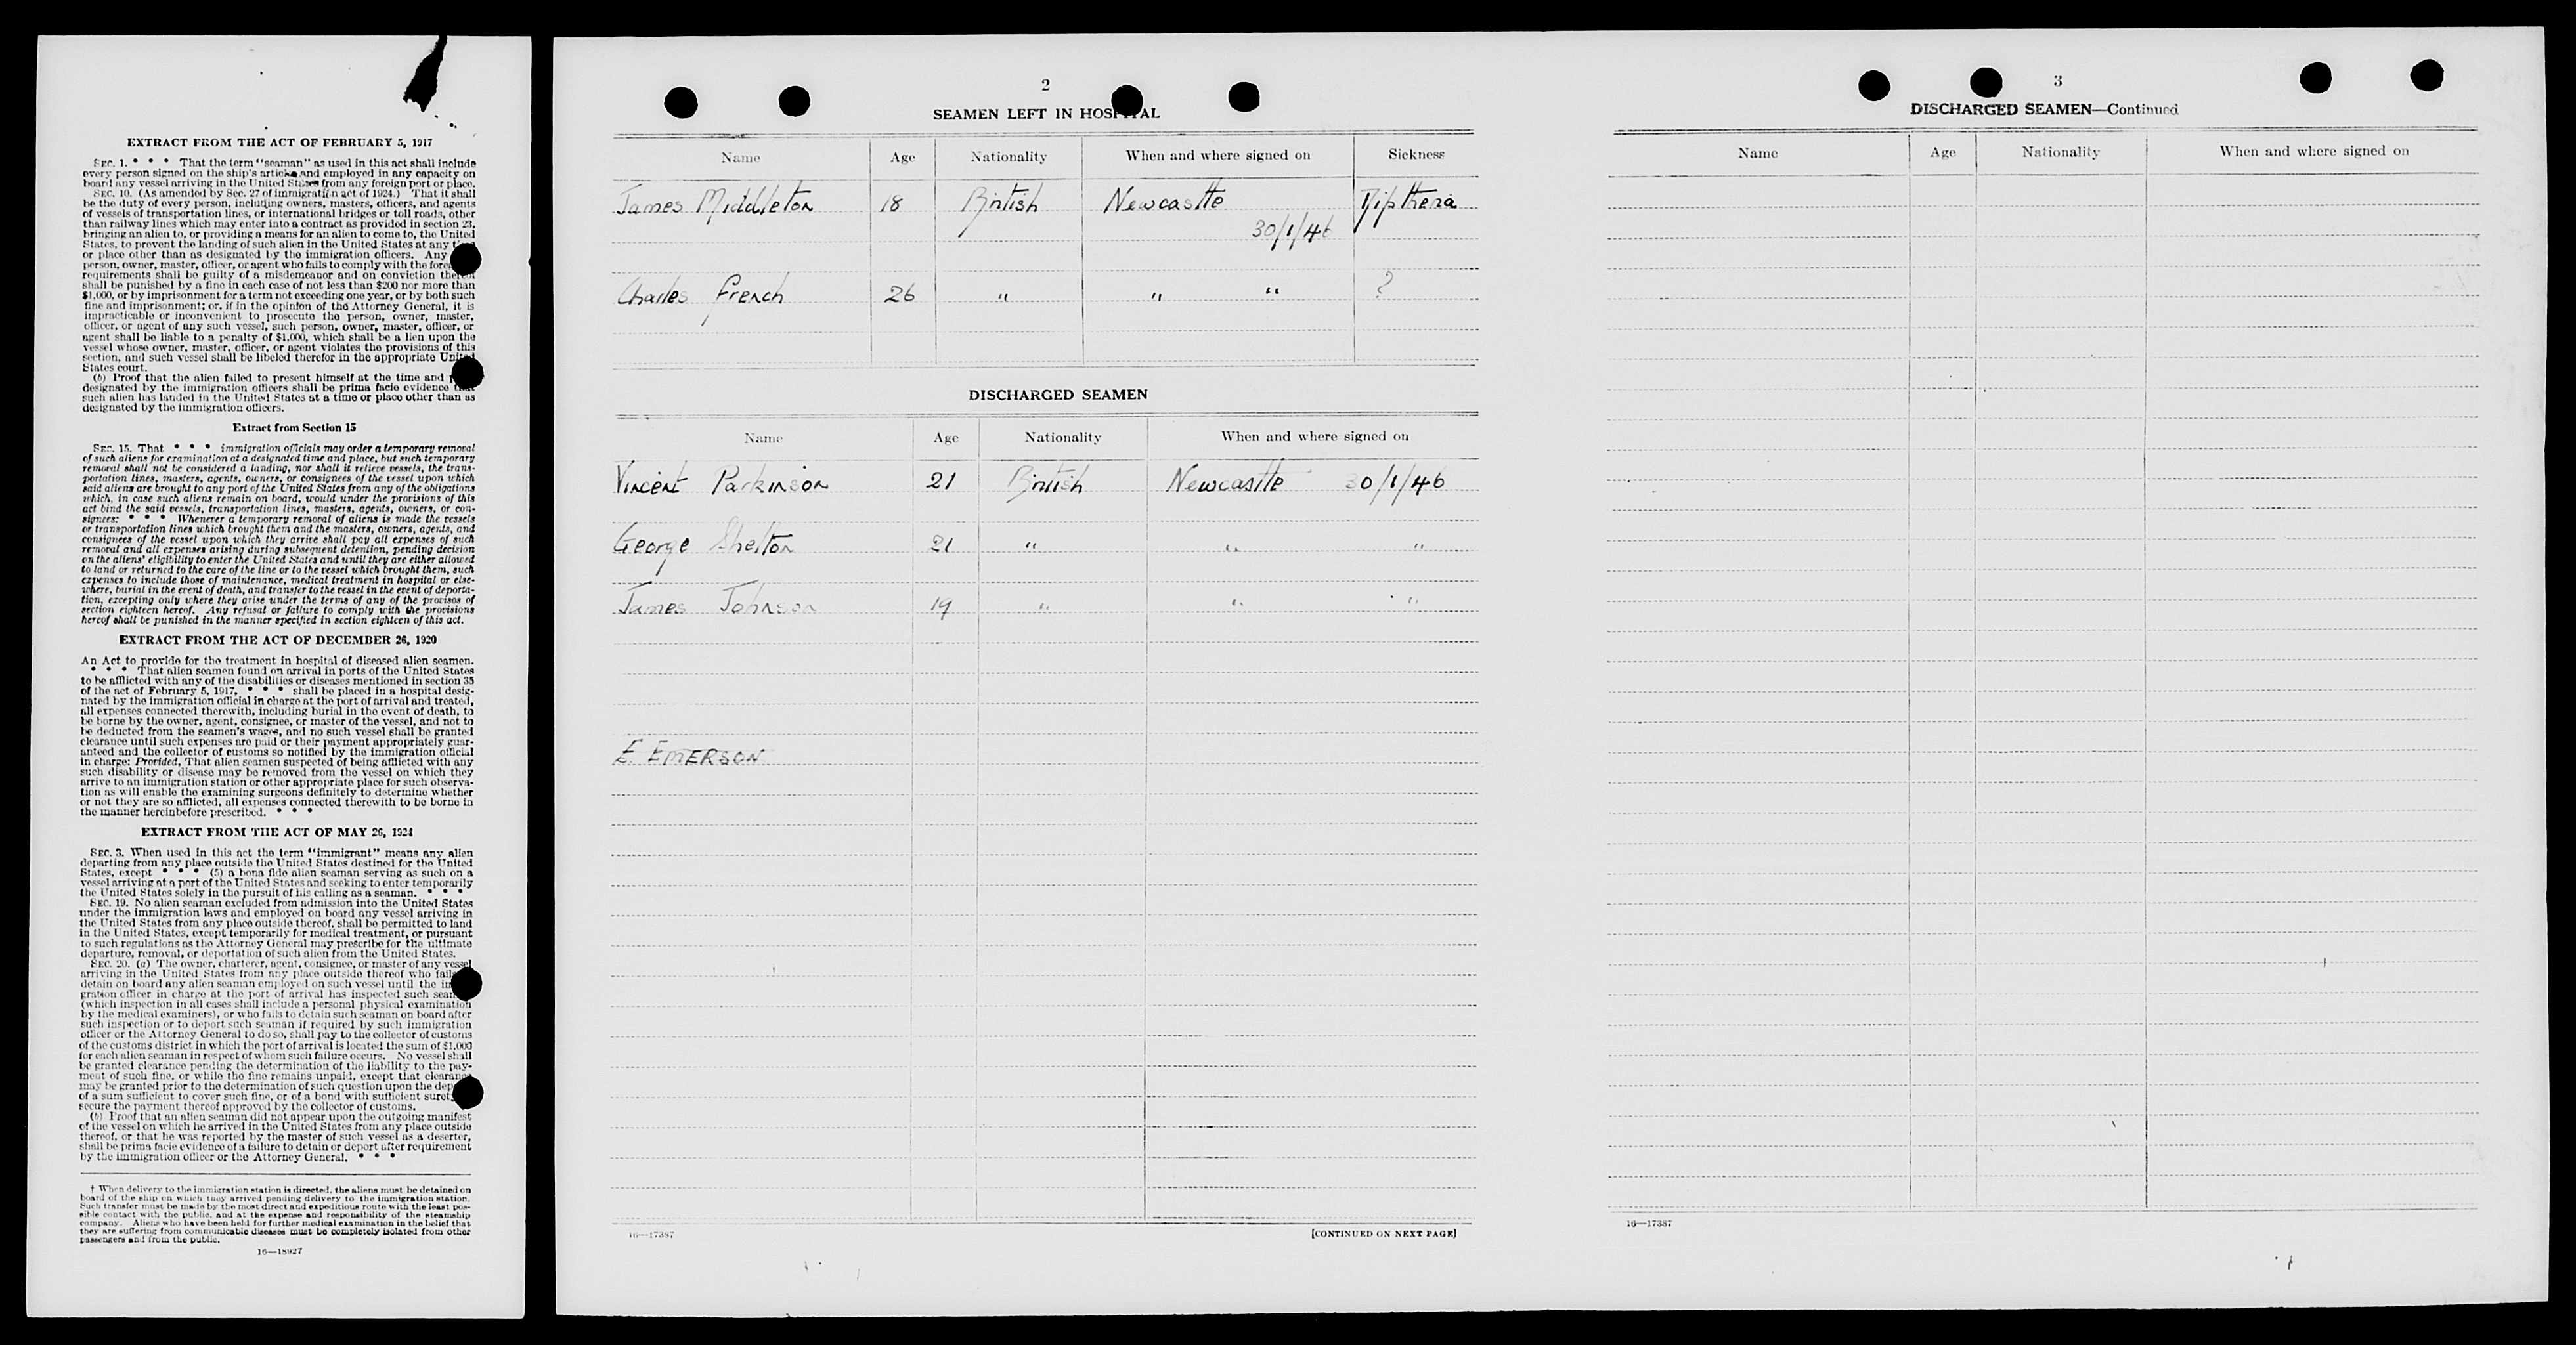 EXTRACT FROM THE ACT OF FEBRUARY 5, 1917
SEC. 1. * * * That the term "seaman" as used in this act shall include
every person signed on the ship's articles and employed in any capacity on
board any vessel arriving in the United States from any foreign port or place.
SEC. 10. (As amended by Sec. 27 of immigration act of 1924.) That it shall
be the duty of every person, including owners, masters, officers, and agents
of vessels of transportation lines, or international bridges or toll roads, other
than railway lines which may enter into a contract as provided in section 23,
bringing an alien to, or providing a means for an alien to come to, the United
States, to prevent the landing of such alien in the United States at any
or place other than as designated by the immigration officers. Any
person, owner, master, officer, or agent who fails to comply with the
requirements shall be guilty of a misdemeanor and on conviction thereof
shall be punished by a fine in each case of not less than $200 nor more than
$1,000, or by imprisonment for a term not exceeding one year, or by both such
fine and imprisonment; or, if in the opinion of the Attorney General, it is
impracticable or inconvenient to prosecute the person, owner, master,
officer, or agent of any such vessel, such person, owner, master, officer, or
agent shall be liable to a penalty of $1,000, which shall be a lien upon the
vessel whose owner, master, officer, or agent violates the provisions of this
section, and such vessel shall be libeled therefor in the appropriate United
States court.
(b) Proof that the alien failed to present himself at the time and
designated by the immigration officers shall be prima facie evidence that
such alien has landed in the United States at a time or place other than as
designated by the immigration officers.
Extract from Section 15
SEC. 15. That * * * immigration officials may order a temporary removal
of such aliens for examination at a designated time and place, but such temporary
removal shall not be considered a landing, nor shall it relieve vessels, the trans-
portation lines, masters, agents, owners, or consignees of the vessel upon which
said aliens are brought to any port of the United States from any of the obligations
which, in case such aliens remain on board, would under the provisions of this
act bind the said vessels, transportation lines, masters, agents, owners, or con-
signees: * * * Whenever a temporary removal of aliens is made the vessels
or transportation lines which brought them and the masters, owners, agents, and
consignees of the vessel upon which they arrive shall pay all expenses of such
removal and all expenses arising during subsequent detention, pending decision
on the aliens' eligibility to enter the United States and until they are either allowed
to land or returned to the care of the line or to the vessel which brought them, such
expenses to include those of maintenance, medical treatment in hospital or else-
where, burial in the event of death, and transfer to the vessel in the event of deporta-
tion, excepting only where they arise under the terms of any of the provisos of
section eighteen hereof. Any refusal or failure to comply with the provisions
hereof shall be punished in the manner specified in section eighteen of this act.
EXTRACT FROM THE ACT OF DECEMBER 26, 1920
An Act to provide for the treatment in hospital of diseased alien seamen.
* * * That alien seamen found on arrival in ports of the United States
to be afflicted with any of the disabilities or diseases mentioned in section 35
of the act of February 5, 1917, * * * shall be placed in a hospital desig-
nated by the immigration official in charge at the port of arrival and treated,
all expenses connected therewith, including burial in the event of death, to
be borne by the owner, agent, consignee, or master of the vessel, and not to
be deducted from the seamen's wages, and no such vessel shall be granted
clearance until such expenses are paid or their payment appropriately guar-
anteed and the collector of customs so notified by the immigration official
in charge: Provided, That alien seamen suspected of being afflicted with any
such disability or disease may be removed from the vessel on which they
arrive to an immigration station or other appropriate place for such observa-
tion as will enable the examining surgeons definitely to determine whether
or not they are so afflicted, all expenses connected therewith to be borne in
the manner hereinbefore prescribed. * * *
EXTRACT FROM THE ACT OF MAY 26, 1924
SEC. 3. When used in this act the term "immigrant" means any alien
departing from any place outside the United States destined for the United
States, except * * * (5) a bona fide alien seaman serving as such on a
vessel arriving at a port of the United States and seeking to enter temporarily
the United States solely in the pursuit of his calling as a seaman. * * *
SEC. 19. No alien seaman excluded from admission into the United States
under the immigration laws and employed on board any vessel arriving in
the United States from any place outside thereof, shall be permitted to land
in the United States, except temporarily for medical treatment, or pursuant
to such regulations as the Attorney General may prescribe for the ultimate
departure, removal, or deportation of such alien from the United States.
SEC. 20. (a) The owner, charterer, agent, consignee, or master of any vessel
arriving in the United States from any place outside thereof who fails
detain on board any alien seaman employed on such vessel until the
gration officer in charge at the port of arrival has inspected such
(which inspection in all cases shall include a personal physical examination
by the medical examiners), or who fails to detain such seaman on board after
such inspection or to deport such seaman if required by such immigration
officer or the Attorney General to do so, shall pay to the collector of customs
of the customs district in which the port of arrival is located the sum of $1,000
for each alien seaman in respect of whom such failure occurs. No vessel shall
be granted clearance pending the determination of the liability to the pay-
ment of such fine, or while the fine remains unpaid, except that clearance
may be granted prior to the determination of such question upon the
of a sum sufficient to cover such fine, or of a bond with sufficient surety
secure the payment thereof approved by the collector of customs.
(b) Proof that an alien seaman did not appear upon the outgoing manifest
of the vessel on which he arrived in the United States from any place outside
thereof, or that he was reported by the master of such vessel as a deserter,
shall be prima facie evidence of a failure to detain or deport after requirement
by the immigration officer or the Attorney General. * * *
† When delivery to the immigration station is directed, the aliens must be detained on
board of the ship on which they arrived pending delivery to the immigration station.
Such transfer must be made by the most direct and expeditious route with the least pos-
sible contact with the public, and at the expense and responsibility of the steamship
company. Aliens who have been held for further medical examination in the belief that
they are suffering from communicable diseases must be completely isolated from other
passengers and from the public.
16—18927
2
SEAMEN LEFT IN HOSPITAL
Name Age Nationality When and where signed on Sickness
James Middleton 18 British Newcastle Diptheria
30/1/46
Charles French 26 " " " ?
DISCHARGED SEAMEN
Name Age Nationality When and where signed on
Vincent Parkinson 21 British Newcastle 30/1/46
George Shelton 21 " " "
James Johnson 19 " " "
E. EMERSON
16—17387
[CONTINUED ON NEXT PAGE]
3
DISCHARGED SEAMEN—Continued
Name Age Nationality When and where signed on
16—17387